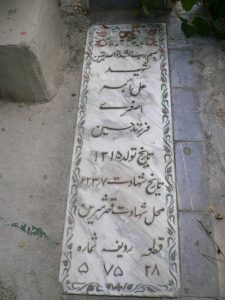 شهید
علی اکبر
اصغری
فرزند حسین
تاریخ تولد ۱۳۱۵
تاریخ شهادت ۶۲٫۳٫۷
محل شهادت قصرشیرین
قطعه ردیف شماره
۲۸ ۷۵ ۵